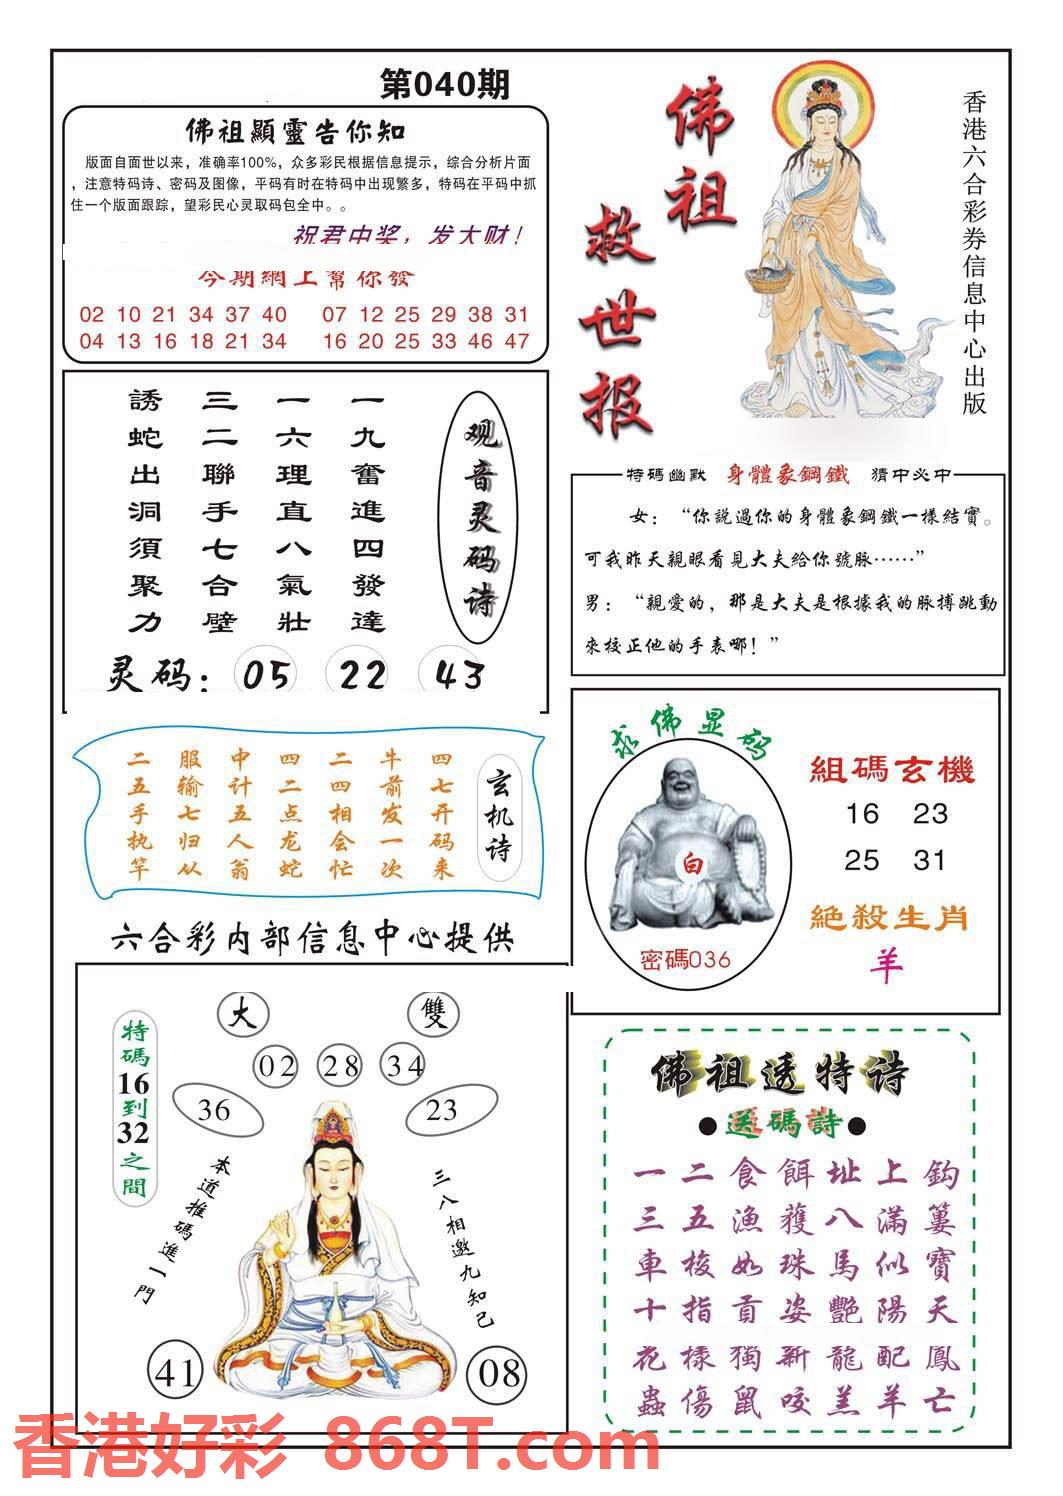 第040期
佛祖顯靈告你知
版面自面世以来，准确率100%，众多彩民根据信息提示，综合分析片面
，注意特码诗、密码及图像，平码有时在特码中出现繁多，特码在平码中抓
住一个版面跟踪，望彩民心灵取码包全中。。
祝君中奖，发大财！
今期網上幫你發
02 10 21 34 37 40 07 12 25 29 38 31
04 13 16 18 21 34 16 20 25 33 46 47
佛祖
救世报
香港六合彩券信息中心出版
观音灵码诗
一九奮進四發達
一六理直八氣壯
三二聯手七合壁
誘蛇出洞須聚力
灵码：05 22 43
特碼幽默 身體象鋼鐵 猜中必中
女：“你說過你的身體象鋼鐵一樣結實。
可我昨天親眼看見大夫給你號脉……”
男：“親愛的，那是大夫是根據我的脉搏跳動
來校正他的手表哪！”
玄机诗
四七开码来
牛前发一次
二四相会忙
四二点龙蛇
中计五人翁
服输七归从
二五手执竿
求佛显码
白
密碼036
組碼玄機
16 23
25 31
絕殺生肖
羊
六合彩内部信息中心提供
大 雙
特碼16到32之間
02 28 34
36 23
本道推碼進一門
三八相邀九知己
41 08
佛祖透特诗
●送碼詩●
一二食餌址上鈎
三五漁獲八滿簍
車梭如珠馬似寶
十指貢姿艷陽天
花樣獨新龍配鳳
蟲傷鼠咬羔羊亡
香港好彩 868T.com